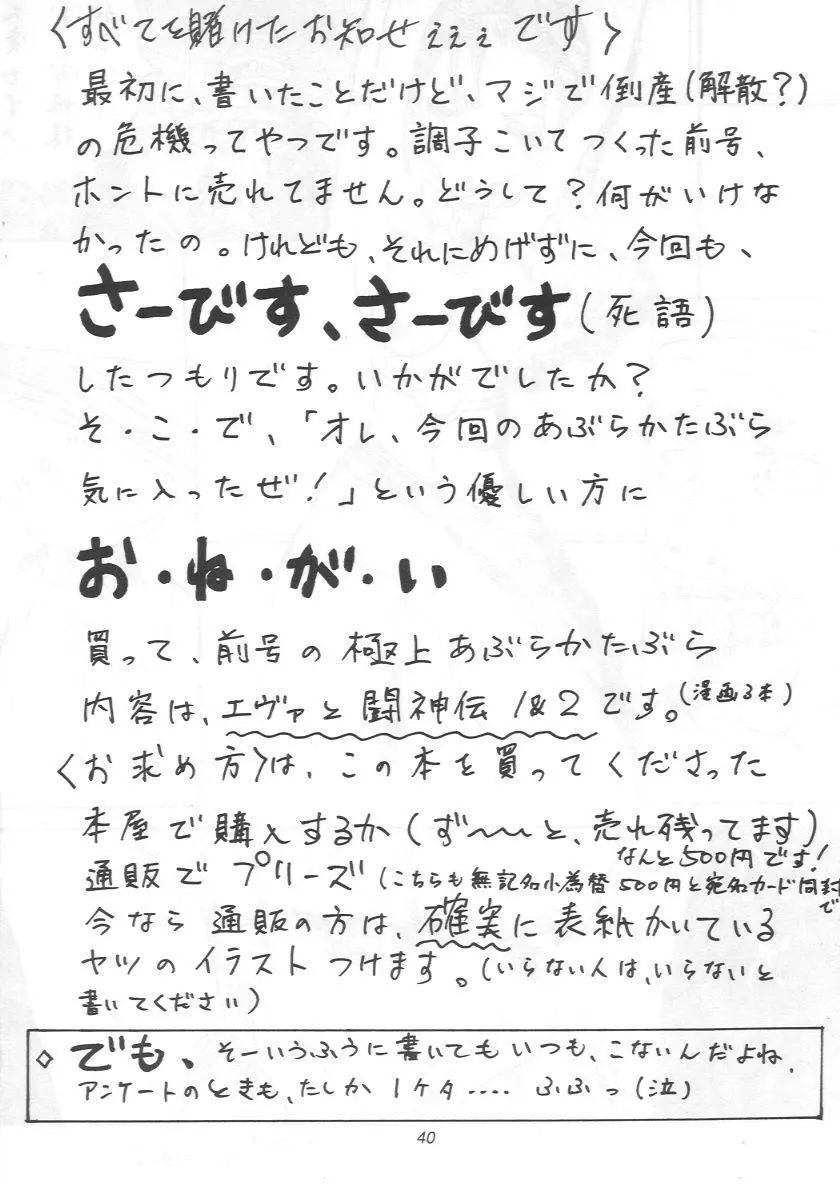 〈すべてを賭けたお知せぇぇぇです〉
最初に、書いたことだけど、マジで倒産(解散?)
の危機ってやつです。調子こいてつくった前号、
ホントに売れてません。どうして?何がいけな
かったの。けれども、それにめげずに、今回も、
さーびす、さーびす(死語)
したつもりです。いかがでしたか?
そ・こ・で、「オレ、今回のあぶらかたぶら
気に入ったぜ!」という優しい方に
お・ね・が・い
買って、前号の極上あぶらかたぶら
内容は、エヴァと闘神伝1&2です。(漫画3本)
〈お求め方〉は、この本を買ってくださった
本屋で購入するか(ず〜〜と、売れ残ってます)
なんと500円です!
通販でプリーズ(こちらも無記名小為替500円と宛名カード同封で
今なら通販の方は、確実に表紙かいている
ヤツのイラストつけます。(いらない人は、いらないと
書いてください)
◇でも、そーいうふうに書いてもいつも、こないんだよね、
アンケートのときも、たしか1ケタ‥‥ふふっ(泣)
40